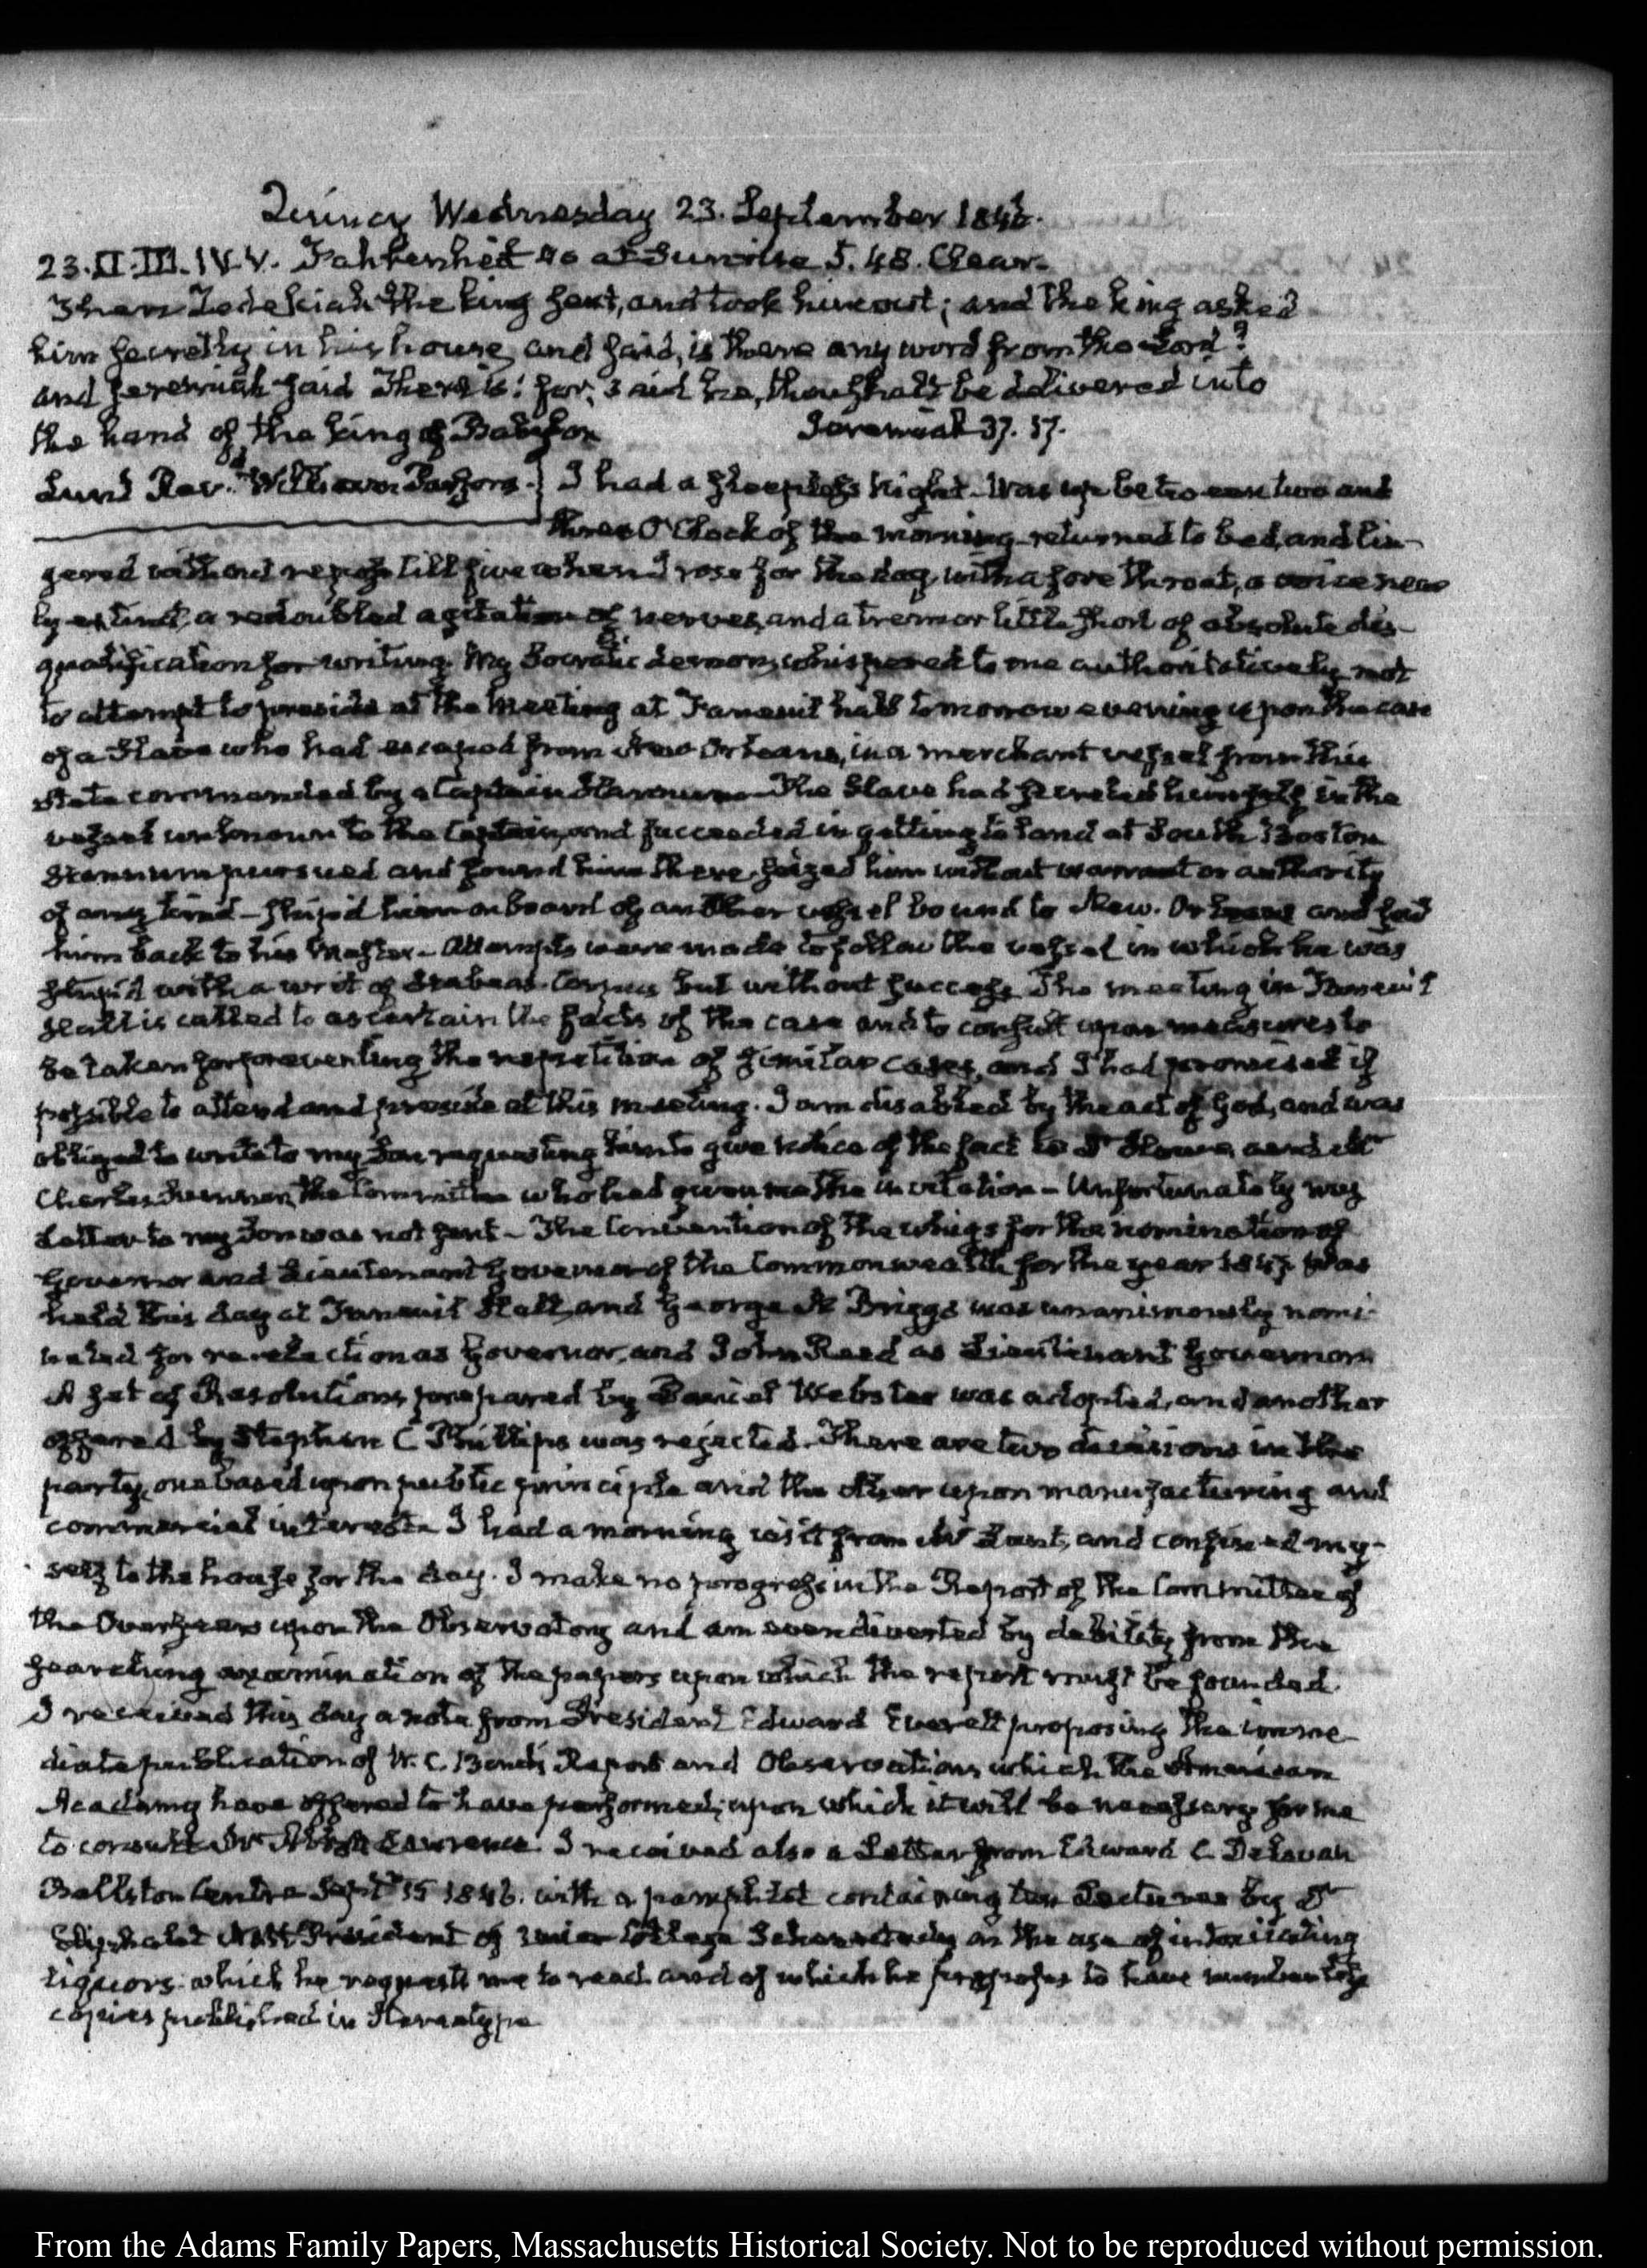 Quincy Wednesday 23. September 1846.
23. II. III. IV. V. Fahrenheit 40 at Sunrise 5.48. Clear.
Then Zedekiah the king sent, and took him out; and the king asked
him secretly in his house, and said, is there any word from the Lord?
and Jeremiah said There is: for, said he, thou shalt be delivered into
the hand of the king of Babylon Jeremiah 37. 17.
Lunt Revd. William Parsons. I had a sleepless night. Was up between two and
three O'Clock of the morning returned to bed, and lin-
gered without repose till five when I rose for the day, with a sore throat, a voice near
ly extinct, a redoubled agitation of nerves, and a tremor little short of absolute dis-
qualification for writing. My Socratic demon, whispered to me authoritatively not
to attempt to preside at the Meeting at Faneuil hall tomorrow evening upon the case
of a Slave who had escaped from New Orleans, in a merchant vessel from this
State commanded by a Captain Hannum. The Slave had secreted himself in the
vessel unknown to the Captain, and succeeded in getting to land at South Boston
Hannum pursued and found him there, seized him without warrant or authority
of any kind – ship'd him on board of another vessel bound to New. Orleans and sent
him back to his Master – Attempts were made to follow the vessel in which he was
ship'd with a writ of Habeas Corpus but without success. The meeting in Faneuil
Hall is called to ascertain the facts of the case and to consult upon measures to
be taken for preventing the repetition of similar cases, and I had promised if
possible to attend and preside at this meeting. I am disabled by the act of God, and was
obliged to write to my Son requesting him to give notice of the fact to Dr Howe, and Mr
Charles Sumner, the Committee who had given me the invitation – Unfortunately my
Letter to my Son was not sent – The Convention of the whigs for the nomination of
Governor and Lieutenant Governor of the Commonwealth for the year 1847 was
held this day at Faneuil Hall, and George N Briggs was unanimously nomi-
nated for re-election as Governor, and John Reed as Lieutenant Governor
A set of Resolutions prepared by Daniel Webster was adopted, and another
offered by Stephen C Phillips was rejected. There are two divisions in the
party, one based upon public principle and the other upon manufacturing and
commercial interests. I had a morning visit from Mr Lunt, and confined my-
self to the house for the day. I make no progress in the Report of the Committee of
the Overseers upon the Observatory and am even diverted by debility from the
searching examination of the papers upon which the report must be founded.
I received this day a note from President Edward Everett proposing the imme-
diate publication of W. C. Bond's Report and Observations which the American
Academy have offered to have performed; upon which it will be necessary for me
to consult Mr Abbott Lawrence. I received also a Letter from Edward C Delavan
Ballston Centre Septr 15 1846. with a pamphlet containing ten Lectures by Dr
Eliphalet Nott President of Union College Schenectady on the use of intoxicating
liquors: which he requests me to read and of which he proposes to have
copies published in Stereotype
From the Adams Family Papers, Massachusetts Historical Society. Not to be reproduced without permission.